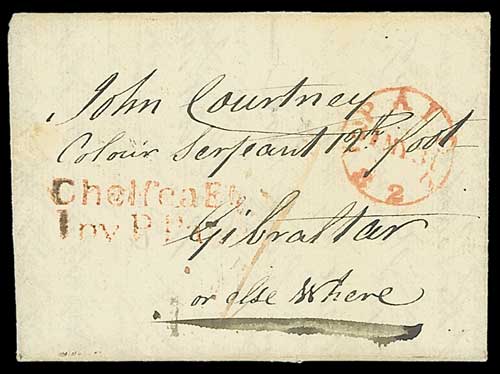 John Courtney
Colour Serjeant 12th foot
Gibraltar
or else Where
PAID
2
Chelsea
1 py P.P.